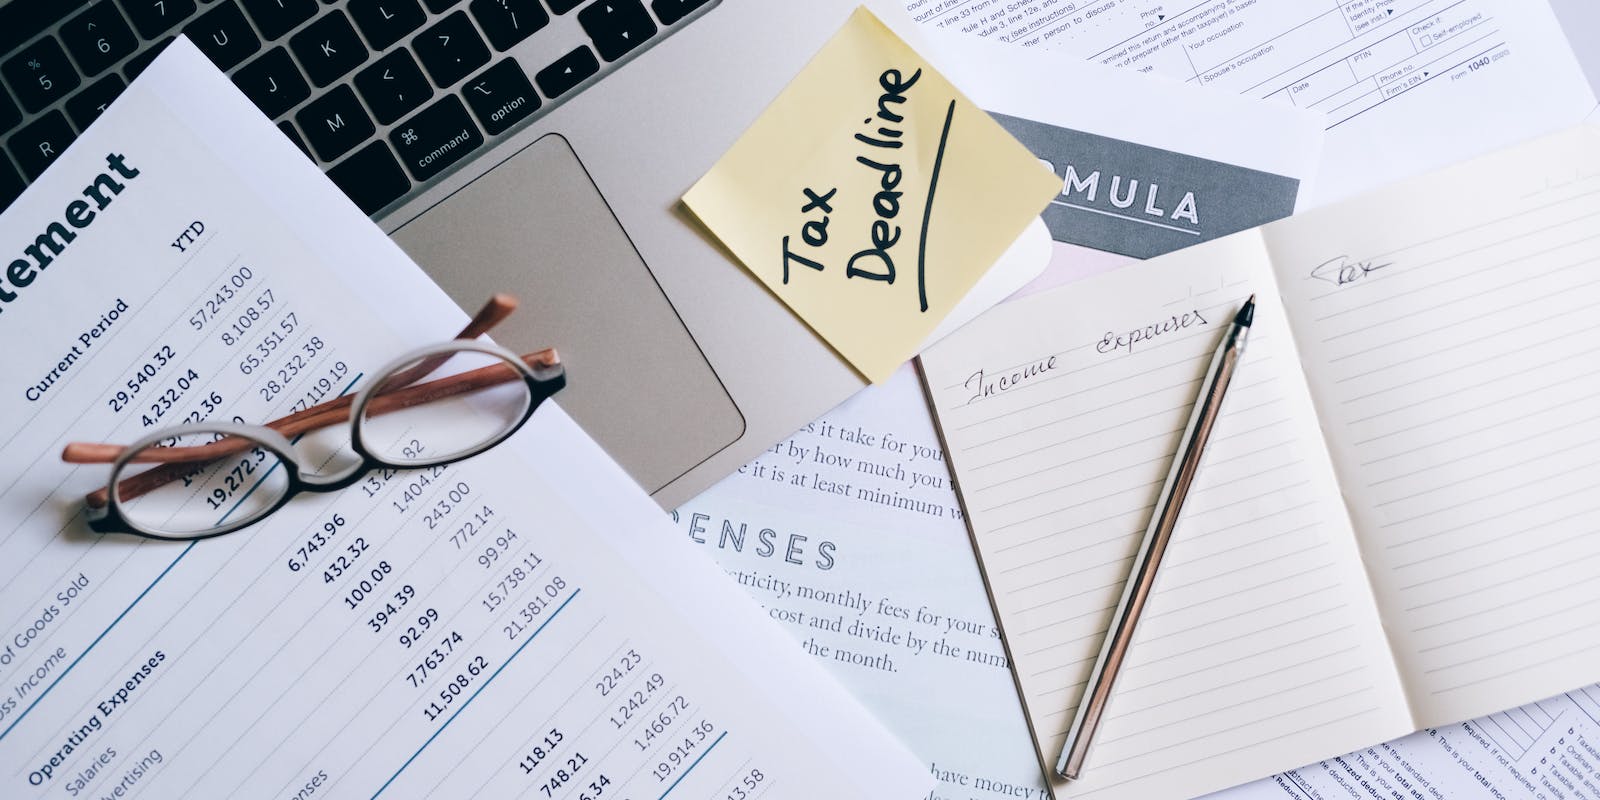 % 5
^ 6
& 7
R
U
J
K
L
M
<
,
>
.
?
/
⌘ command
⌥ option
tement
Current Period YTD
29,540.32 57,243.00
4,232.04 8,108.57
72.36 65,351.57
28,232.38
37,119.19
19,272.3
of Goods Sold
ss Income
Operating Expenses
Salaries
vertising
6,743.96
432.32 1,404.2
100.08 243.00
394.39 772.14
92.99 99.94
7,763.74 15,738.11
11,508.62 21,381.08
enses
118.13 224.23
748.21 1,242.49
6.34 1,466.72
19,914.36
13.58
Tax
Deadline
MULA
s it take for you
r by how much you
it is at least minimum
ENSES
ctricity, monthly fees for your
cost and divide by the num
the month.
have money
Income expenses
Tax
line 33 from
(see instructions)
Phone no.
Your occupation
Spouse's occupation
Date
PTIN
Check if:
Self-employed
Phone no.
Firm's EIN
Form 1040
Identity Pro
(see inst.)